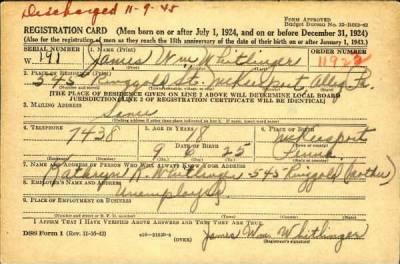 Discharged 11-9-45
FORM APPROVED
REGISTRATION CARD—(Men born on or after July 1, 1924, and on or before December 31, 1924)
(Also for the registration of men as they reach the 18th anniversary of the date of their birth on or after January 1, 1943.)
SERIAL NUMBER
1. NAME (Print)
W. 191
James Wm Whitlinger
2. PLACE OF RESIDENCE (Print)
545 Ringgold St. McKeesport, Alleg. Pa.
[THE PLACE OF RESIDENCE GIVEN ON LINE 2 ABOVE WILL DETERMINE LOCAL BOARD
JURISDICTION; LINE 2 OF REGISTRATION CERTIFICATE WILL BE IDENTICAL]
3. MAILING ADDRESS
Same
4. TELEPHONE
5. AGE IN YEARS
6. PLACE OF BIRTH
7438
18
McKeesport
DATE OF BIRTH
9 6 25
Penna.
7. NAME AND ADDRESS OF PERSON WHO WILL ALWAYS KNOW YOUR ADDRESS
Kathryn R. Whitlinger 545 Ringgold (Mother)
8. EMPLOYER'S NAME AND ADDRESS
Unemployed
9. PLACE OF EMPLOYMENT OR BUSINESS
I AFFIRM THAT I HAVE VERIFIED ABOVE ANSWERS AND THAT THEY ARE TRUE.
DSS Form 1
(OVER)
James Wm. Whitlinger
(Registrant's signature)